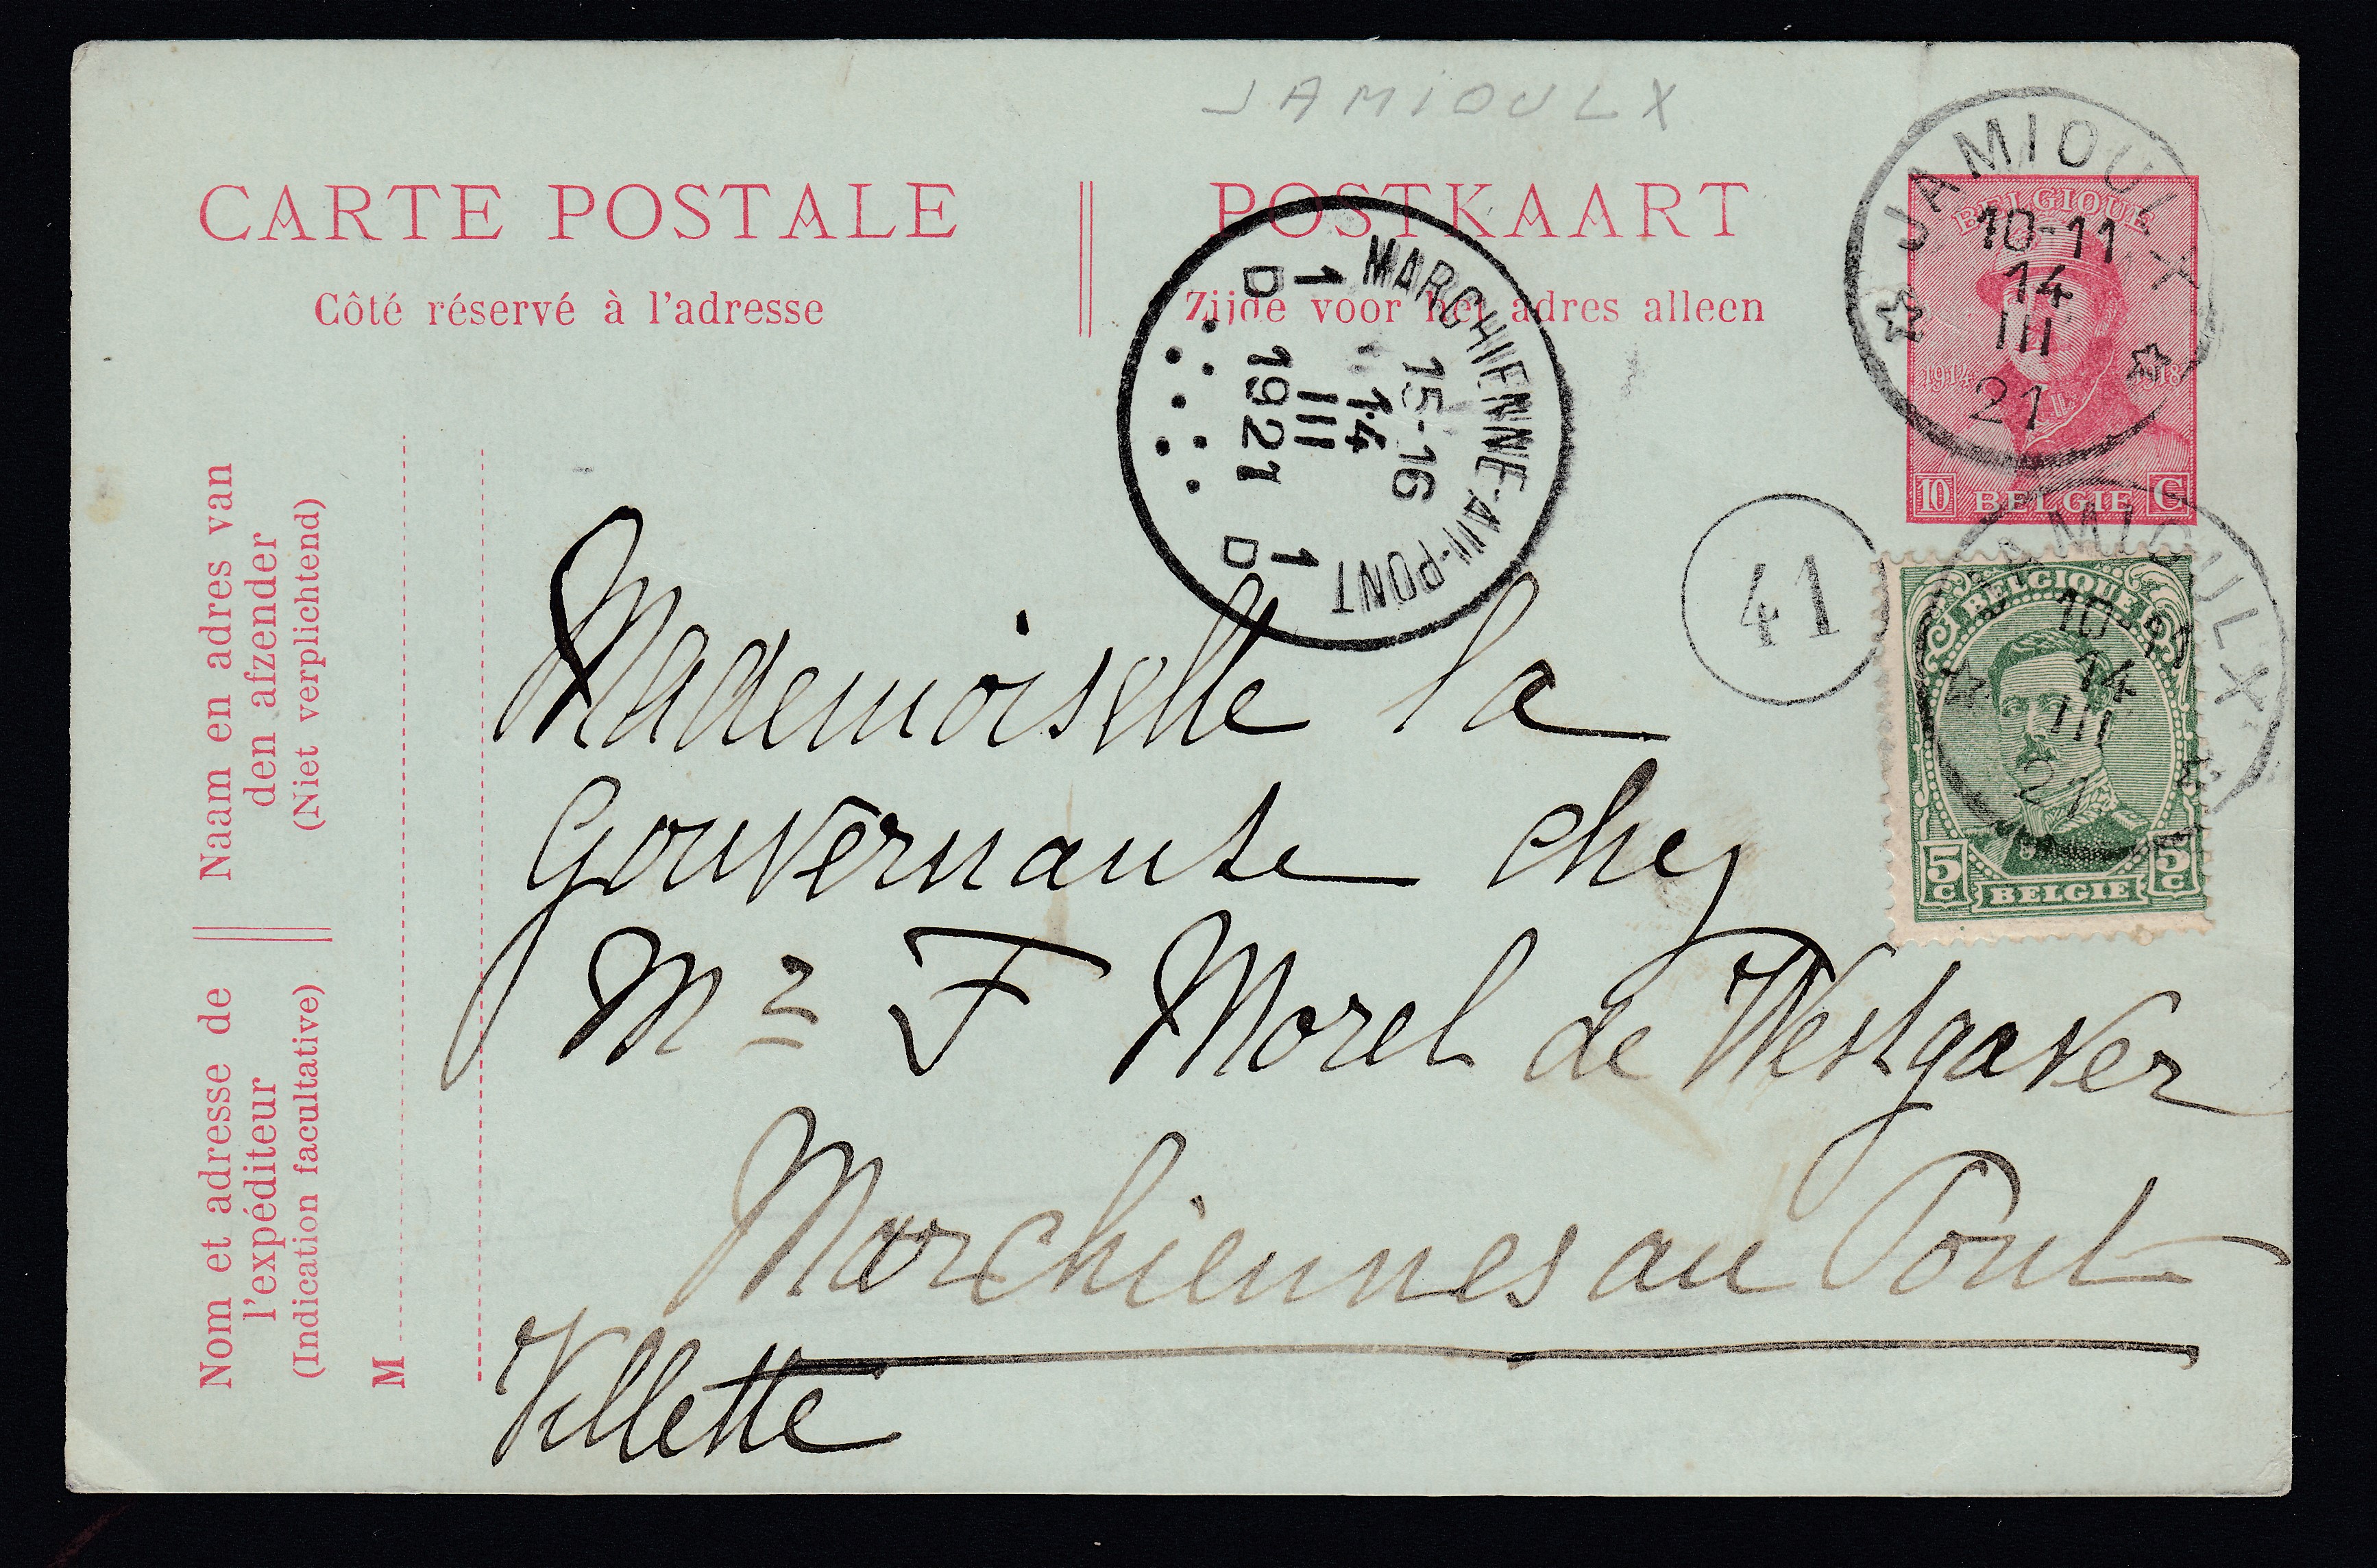 JAMIOULX
CARTE POSTALE
POSTKAART
Côté réservé à l'adresse
Zijde voor het adres alleen
JAMIOULX
10-11
14
III
21
BELGIQUE
1914 1918
10 BELGIE C
MARCHIENNE-AU-PONT
15-16
14
III
1921
1 1
D D
41
JAMIOULX
10-11
14
III
21
BELGIQUE
5 c BELGIE 5 c
Mademoiselle la
Gouvernante chez
Mr F Morel de Westgaver
Marchiennes au Pont
Villette
Naam en adres van
den afzender
(Niet verplichtend)
Nom et adresse de
l'expéditeur
(Indication facultative)
M